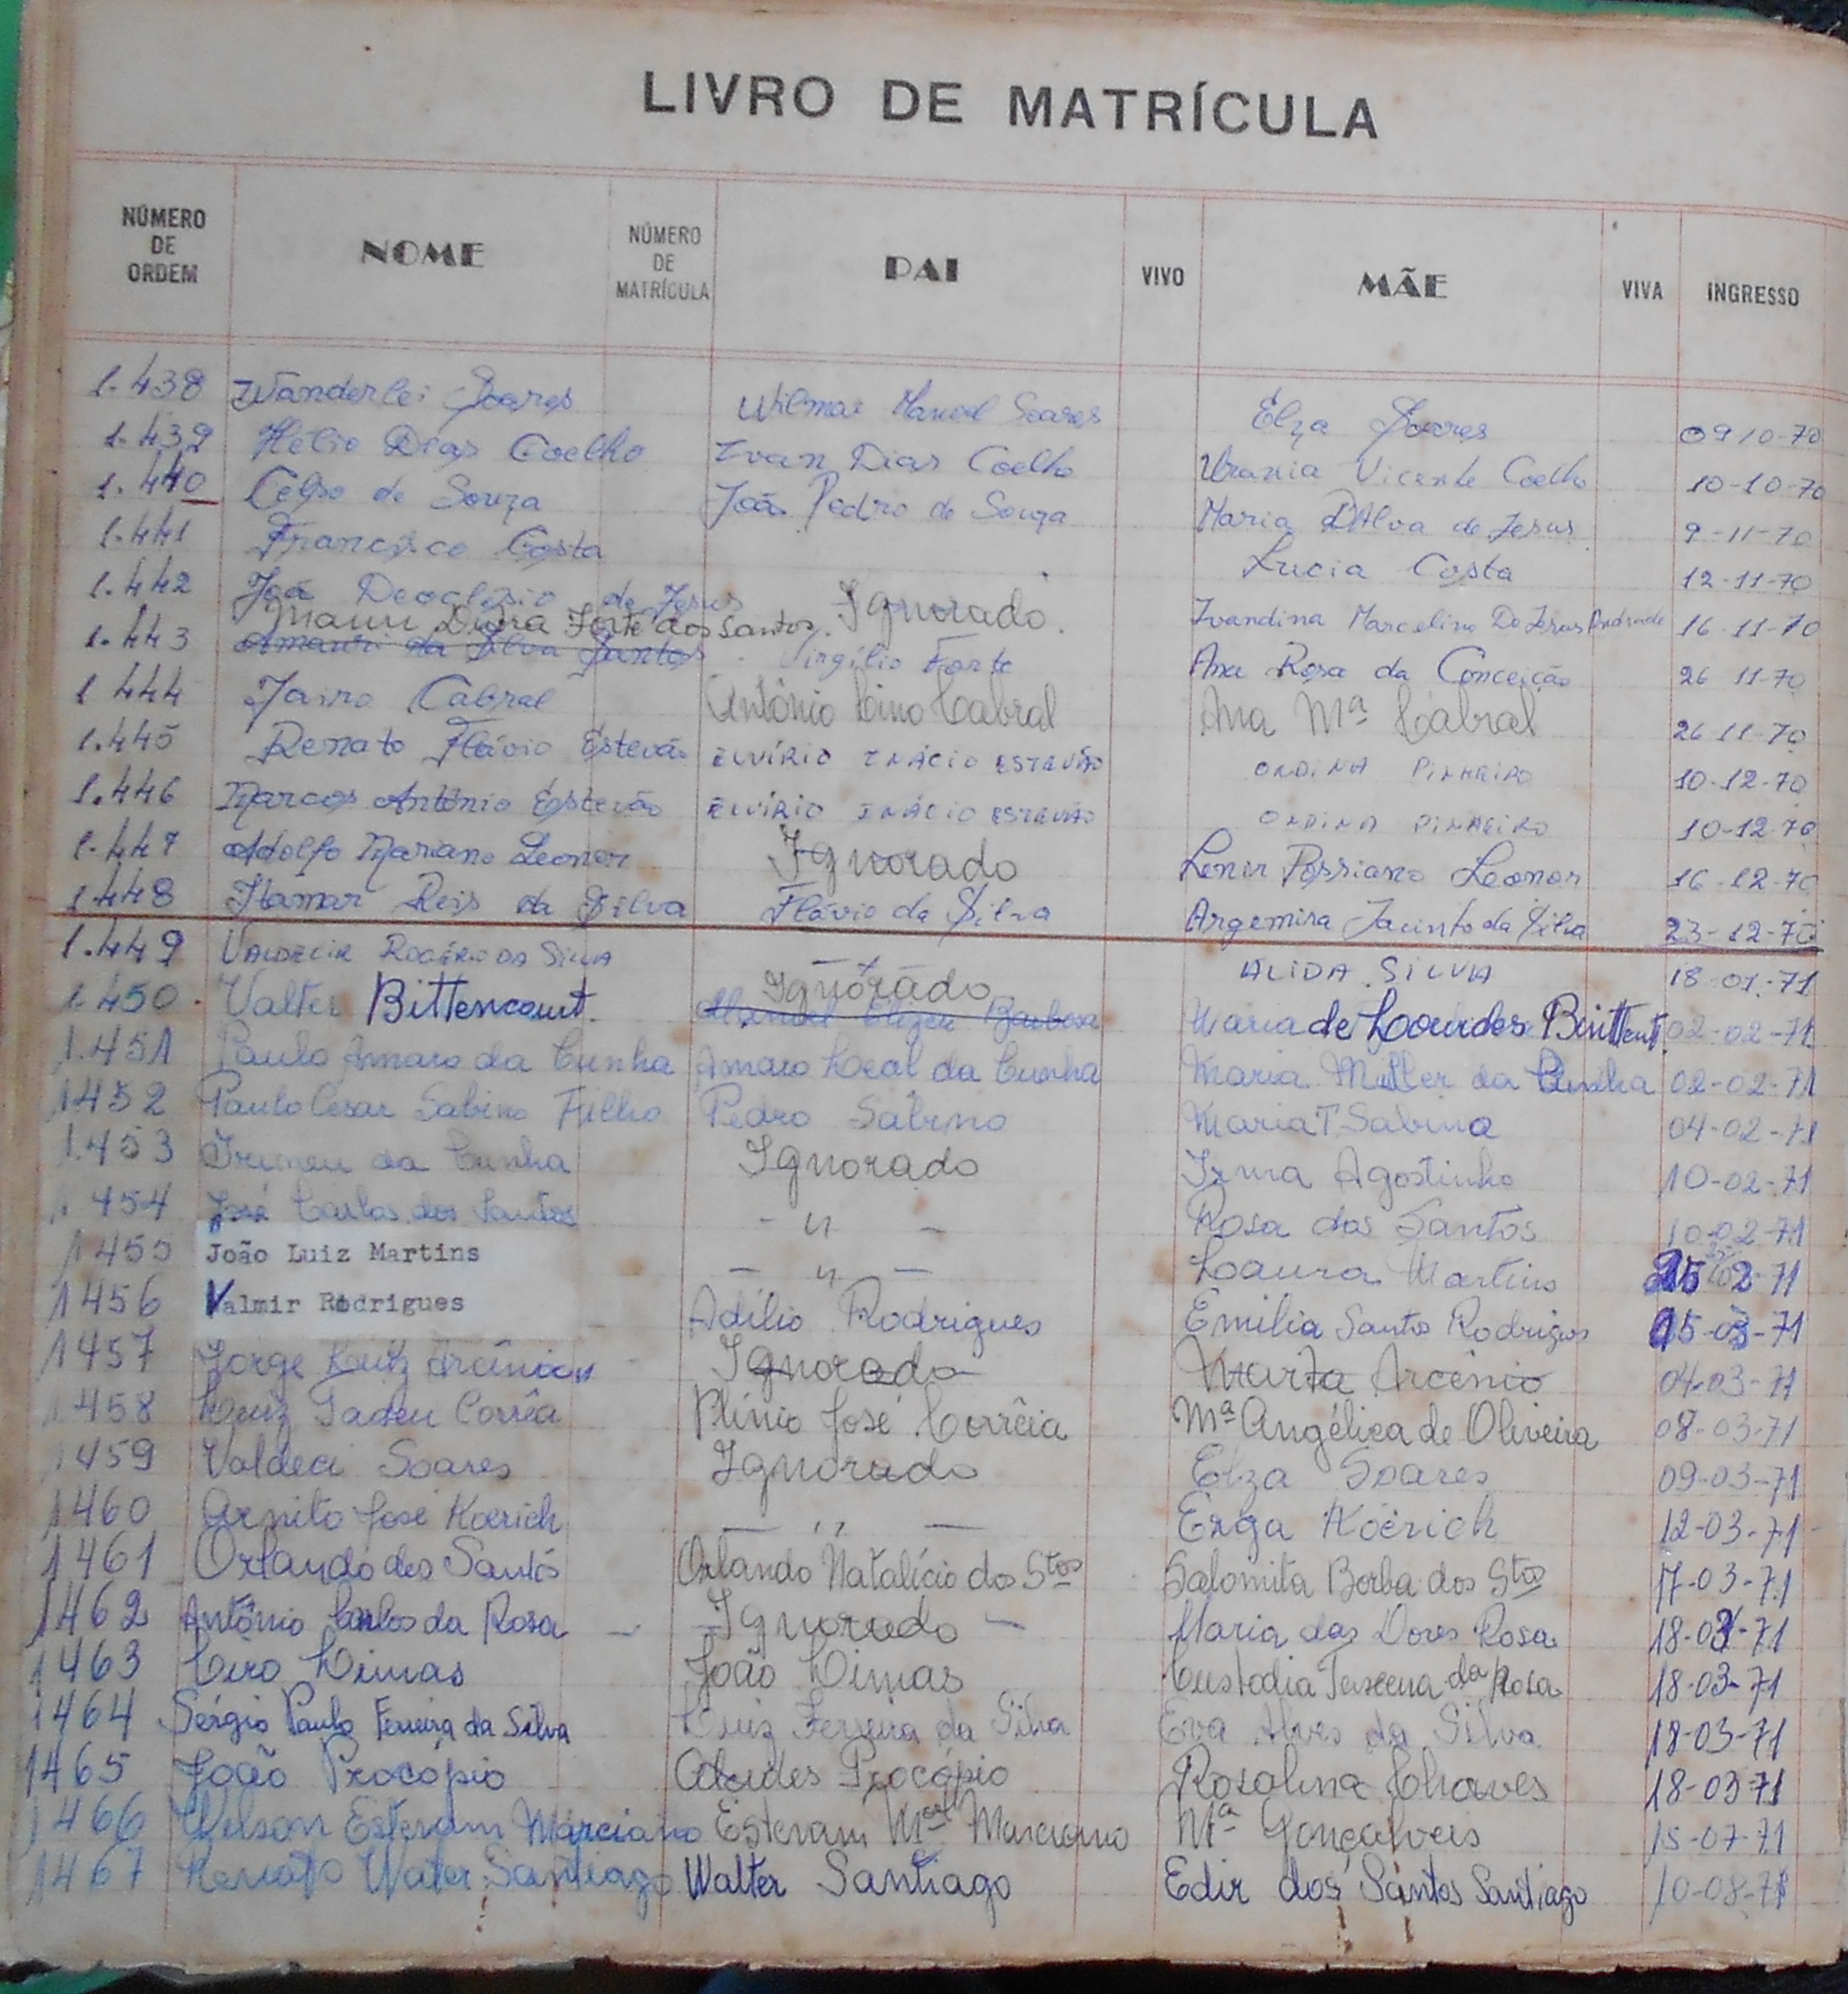 LIVRO DE MATRÍCULA
NÚMERO DE ORDEM NOME NÚMERO DE MATRÍCULA PAI VIVO MÃE VIVA INGRESSO
1.438 Wanderlei Soares Wilmar Manoel Soares Elza Soares 09 10-70
1.439 Hélio Dias Coelho Ivan Dias Coelho Urania Vicente Coelho 10-10-70
1.440 Celso de Souza João Pedro de Souza Maria D'Alva de Jesus 9-11-70
1.441 Francisco Costa Lucia Costa 12-11-70
1.442 João de Jesus Ignorado. Ivandina Marcelino De Jesus Andrade 16-11-70
Mauri Forte dos Santos.
1.443 Amauri da Silva Santos Virgílio Forte Ana Rosa da Conceição 26 11-70
1 444 Jairo Cabral Antônio Lino Cabral Ana Mª Cabral 26 11-70
1.445 Renato Flávio Estevão ELVÍRIO INÁCIO ESTEVÃO ONDINA PINHEIRO 10-12-70
1.446 Marcos Antônio Estevão ELVÍRIO INÁCIO ESTEVÃO ONDINA PINHEIRO 10-12-70
1.447 Adolfo Mariano Leonor Ignorado Leonor 16-12-70
1.448 Itamar Reis da Silva Flávio da Silva Argemira Jacinto da Silva 23-12-70
1.449 VALDECIR ROGÉRIO DA SILVA ALIDA SILVIA 18-01-71
1.450 Valter Bittencourt. Ignorado Barbosa Maria de Lourdes Bittent. 02-02-71
1.451 Paulo Amaro da Cunha Amaro Leal da Cunha Maria Muller da Cunha 02-02-71
1452 Paulo Cesar Sabino Filho Pedro Sabino Maria T. Sabina 04-02-71
1.453 Irineu da Cunha Ignorado Irma Agostinho 10-02-71
1 454 José Carlos dos Santos - " - Rosa dos Santos 10-02-71
1455 João Luiz Martins - " - Laura Martins 71
1456 Valmir Rodrigues Adílio Rodrigues Emilia Santos Rodrigues 15-03-71
1457 Jorge Luiz Arcênio Ignorado Maria Arcênio 04-03-71
1458 Luiz Tadeu Corrêa Plínio José Corrêia Mª Angélica de Oliveira 08-03-71
1459 Valdeci Soares Ignorado Elza Soares 09-03-71
1460 Arnito José Koerich — " — Erga Koerich 12-03-71
1461 Orlando dos Santos Orlando Natalício dos Stos Salomita Borba dos Stos 17-03-71
1462 Antônio Carlos da Rosa Ignorado Maria das Dores Rosa 18-03-71
1463 Ciro Dimas João Dimas Custodia da Rosa 18-03-71
1464 Sérgio Paulo Ferreira da Silva Luiz Ferreira da Silva Eva Alves da Silva 18-03-71
1465 João Procópio Alcides Procópio Rosalina Chaves 18-03-71
1466 Wilson Estevam Marciano Estevam Mel Marciano Mª Gonçalveis 15-07-71
1467 Renato Water Santiago Walter Santiago Edir dos Santos Santiago 10-08-71